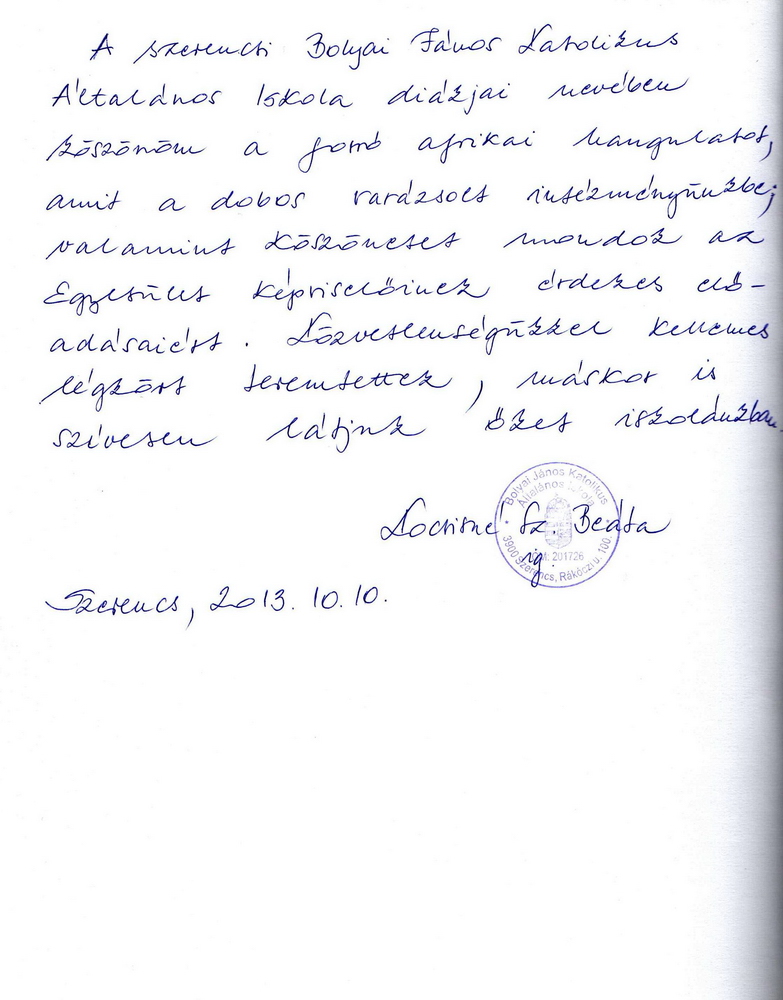 A szerencsi Bolyai János Katolikus
Általános Iskola diákjai nevében
köszönöm a forró afrikai hangulatot,
amit a dobos varázsolt intézményünkbe,
valamint köszönetet mondok az
Egyesület képviselőinek érdekes elő-
adásaiért. Közvetlenségükkel kellemes
légkört teremtettek, máskor is
szívesen látjuk őket iskolánkban.
Bolyai János Katolikus
Általános Iskola
Sz. Beáta
ig.
OM: 201726
3900 Szerencs, Rákóczi u. 100.
Szerencs, 2013. 10. 10.